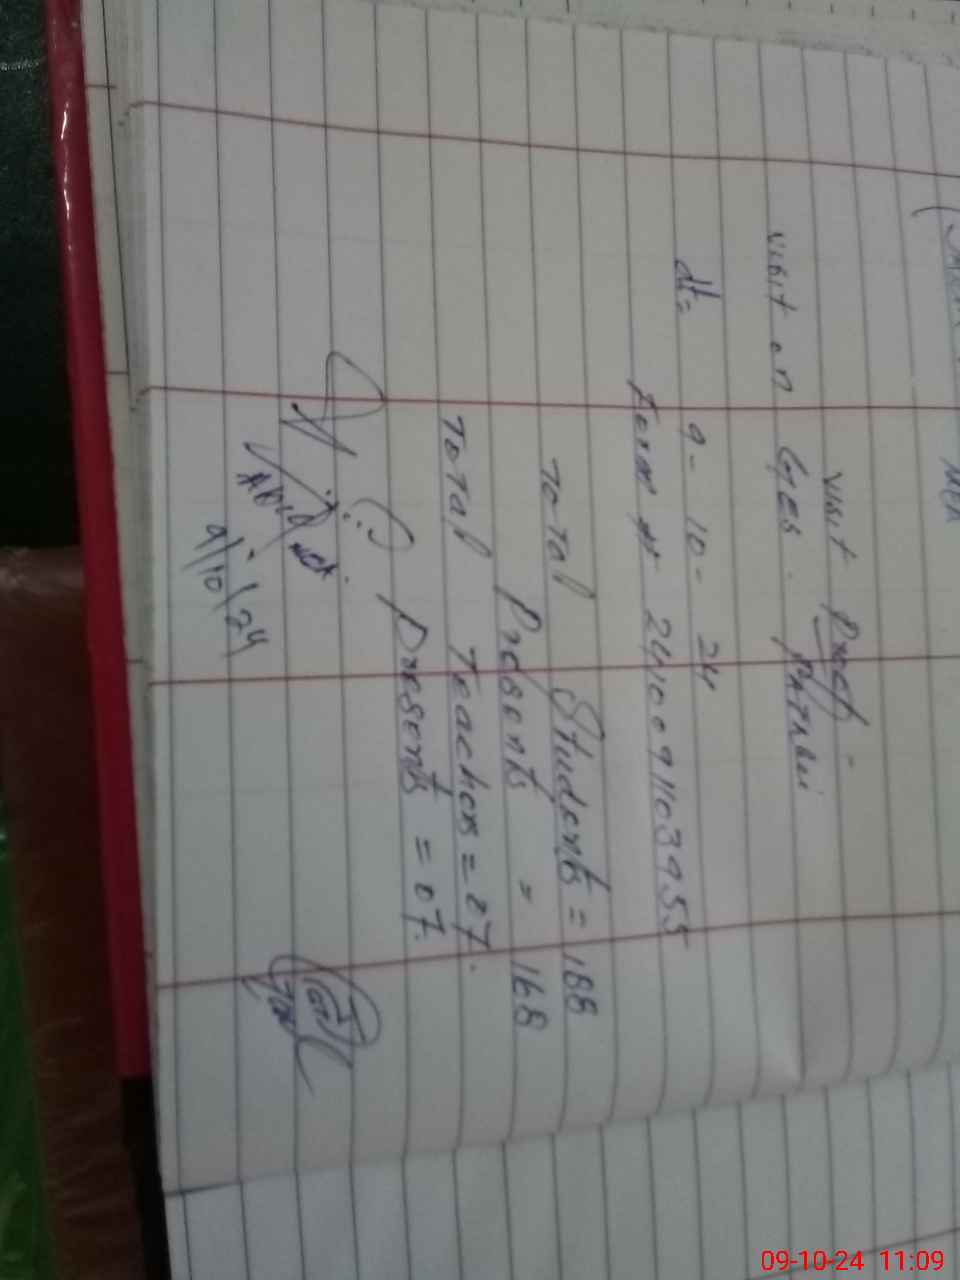 MEA
Visit Proof
Visit on GES.
dt= 9 - 10 - 24
Form # 2410091103955
Total Students = 188
Presents = 168
Total Teachers = 07.
Presents = 07.
9/10/24
09-10-24 11:09